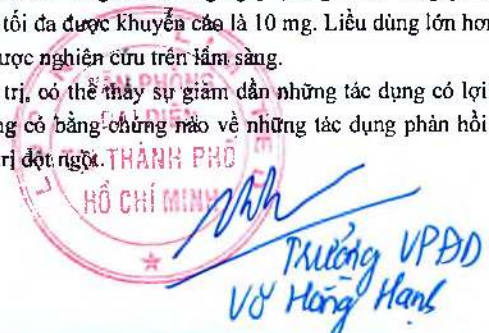 tối đa được khuyến cáo là 10 mg. Liều dùng lớn hơn
ược nghiên cứu trên lâm sàng.
trị, có thể thấy sự giảm dần những tác dụng có lợi
ng có bằng chứng nào về những tác dụng phản hồi
rị đột ngột.
VĂN PHÒNG
ĐẠI DIỆN
THÀNH PHỐ
HỒ CHÍ MINH
Trưởng VPĐD
Võ Hồng Hạnh